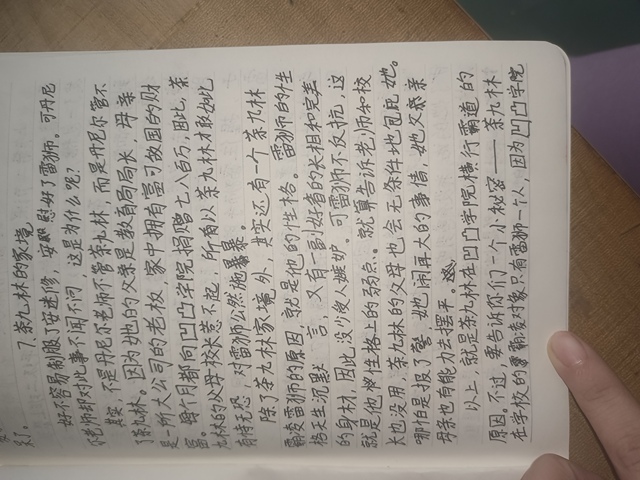 灭了。
7.茶九林的家境
好不容易制服了安迷修,安慰好了雷狮。可丹尼
尔老师却对此事不闻不问,这是为什么呢?
其实,不是丹尼尔老师不管茶九林,而是丹尼尔管不
了茶九林。因为她的父亲是教育局局长,母亲
是一所大公司的老板,家中拥有富可敌国的财
富。每个月都向凹凸学院捐赠七八百万,因此,茶
九林的父母校长惹不起,所有以茶九林才敢如此
有恃无恐,对雷狮公然施暴。
除了茶九林家境外,其实还有一个茶九林
霸凌雷狮的原因,就是他的性格。雷狮的性
格天生沉默寡言,又有一副好看的长相和完美
的身材,因此,没少被人嫉妒。可雷狮不反抗,这
就是他性格上的弱点。就算告诉老师和校
长也没用,茶九林的父母也会无条件地包庇她。
哪怕是报了警,她闹再大的事情,她父亲亲
母亲也有能力去摆平。
以上,就是茶九林在凹凸学院横行霸道的
原因。不过,要告诉你们一个小秘密——茶九林
在学校的霸凌对象只有雷狮一个人,因为凹凸学院